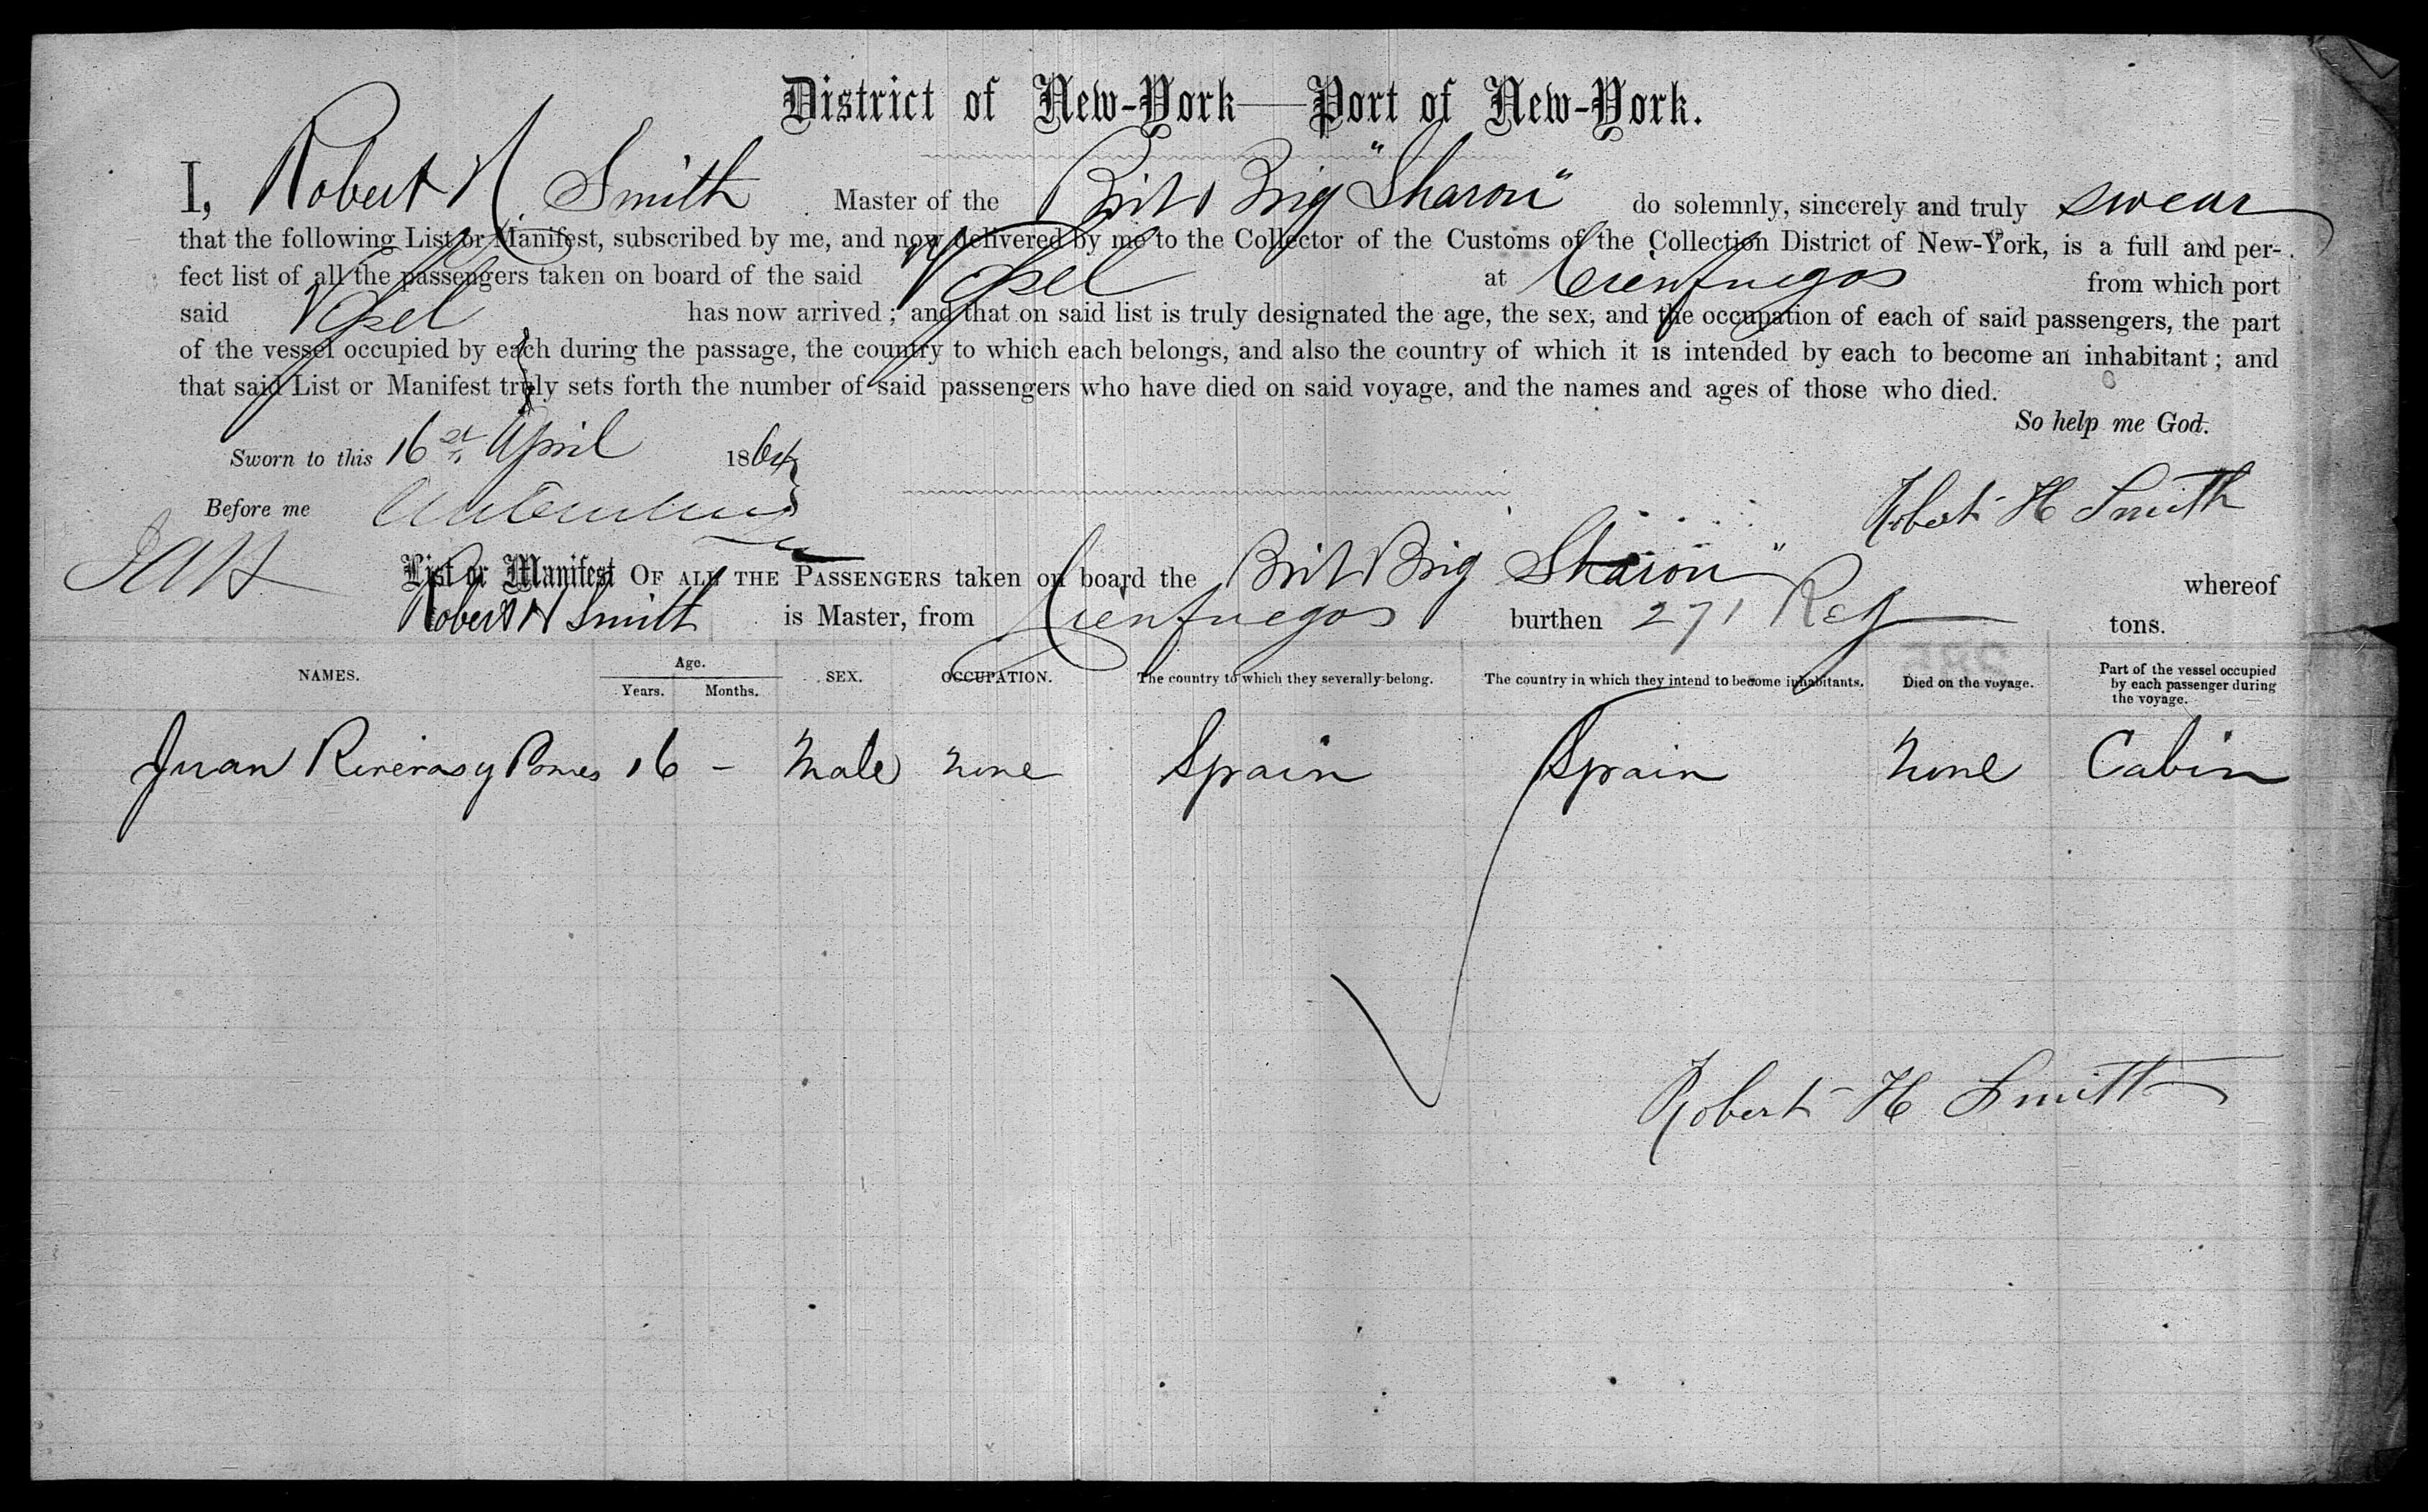 District of New-York—Port of New-York.
I, Robert H Smith Master of the Brit Brig "Sharon" do solemnly, sincerely and truly swear
that the following List or Manifest, subscribed by me, and now delivered by me to the Collector of the Customs of the Collection District of New-York, is a full and per-
fect list of all the passengers taken on board of the said Vessel at Cienfuegos from which port
said Vessel has now arrived; and that on said list is truly designated the age, the sex, and the occupation of each of said passengers, the part
of the vessel occupied by each during the passage, the country to which each belongs, and also the country of which it is intended by each to become an inhabitant; and
that said List or Manifest truly sets forth the number of said passengers who have died on said voyage, and the names and ages of those who died.
So help me God.
Sworn to this 16 April 1864
Before me
Robert H Smith
List or Manifest OF ALL THE PASSENGERS taken on board the Brit Brig Sharon" whereof
Robert H Smith is Master, from Cienfuegos burthen 271 Reg tons.
NAMES. Age. Years. Months. SEX. OCCUPATION. The country to which they severally belong. The country in which they intend to become inhabitants. Died on the voyage. Part of the vessel occupied by each passenger during the voyage.
Juan Riveras y 16 - Male None Spain Spain None Cabin
Robert H Smith